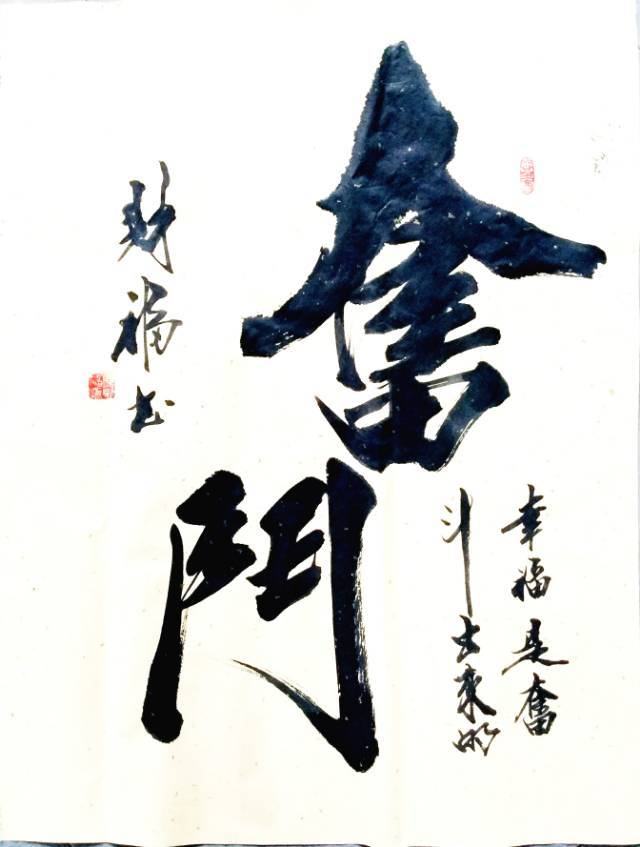 奮鬥
幸福是奮
斗出來的
財福書